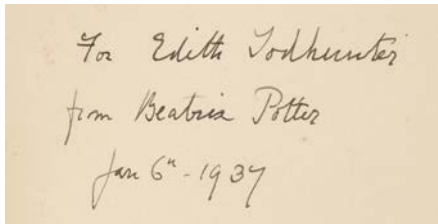 For Edith Todhunter
from Beatrix Potter
Jan 6th - 1937